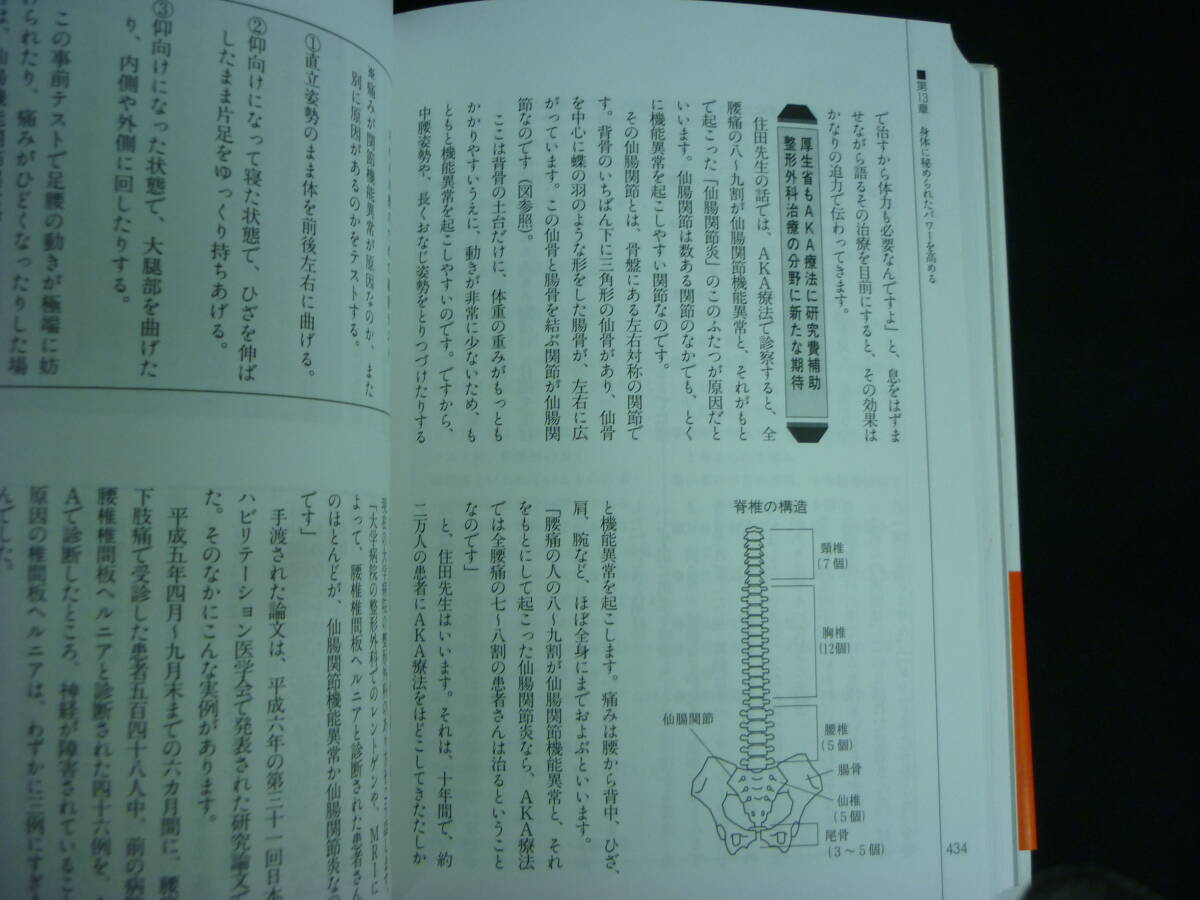 ■第13章 身体に秘められたパワーを高める
で治すから体力も必要なんですよ」と、息をはずま
せながら語るその治療を目前にすると、その効果は
かなりの迫力で伝わってきます。
厚生省もAKA療法に研究費補助
整形外科治療の分野に新たな期待
住田先生の話では、AKA療法で診察すると、全
腰痛の八〜九割が仙腸関節機能異常と、それがもと
で起こった「仙腸関節炎」のこのふたつが原因だと
いいます。仙腸関節は数ある関節のなかでも、とく
に機能異常を起こしやすい関節なのです。
その仙腸関節とは、骨盤にある左右対称の関節で
す。背骨のいちばん下に三角形の仙骨があり、仙骨
を中心に蝶の羽のような形をした腸骨が、左右に広
がっています。この仙骨と腸骨を結ぶ関節が仙腸関
節なのです(図参照)。
ここは背骨の土台だけに、体重の重みがもっとも
かかりやすいうえに、動きが非常に少ないため、も
ともと機能異常を起こしやすいのです。ですから、
中腰姿勢や、長くおなじ姿勢をとりつづけたりする
脊椎の構造
頸椎
(7個)
胸椎
(12個)
腰椎
(5個)
仙腸関節
腸骨
仙椎
(5個)
尾骨
(3〜5個)
と機能異常を起こします。痛みは腰から背中、ひざ、
肩、腕など、ほぼ全身にまでおよぶといいます。
「腰痛の人の八〜九割が仙腸関節機能異常と、それ
をもとにして起こった仙腸関節炎なら、AKA療法
では全腰痛の七〜八割の患者さんは治るということ
なのです」
と、住田先生はいいます。それは、十年間で、約
二万人の患者にAKA療法をほどこしてきたたしか
434
※痛みが関節機能異常が原因なのか、また
別に原因があるのかをテストする。
①直立姿勢のまま体を前後左右に曲げる。
②仰向けになって寝た状態で、ひざを伸ば
したまま片足をゆっくり持ちあげる。
③仰向けになった状態で、大腿部を曲げた
り、内側や外側に回したりする。
この事前テストで足腰の動きが極端に妨
げられたり、痛みがひどくなったりした場
「大学病院の整形外科でのレントゲンや、MRIに
よって、腰椎椎間板ヘルニアと診断された患者さん
のほとんどが、仙腸関節機能異常か仙腸関節炎なの
です」
手渡された論文は、平成六年の第三十一回日本
ハビリテーション医学会で発表された研究論文で
た。そのなかにこんな実例があります。
平成五年四月〜九月末までの六カ月間に、腰
下肢痛で受診した患者五百四十八人中、前の病
腰椎椎間板ヘルニアと診断された四十六例を、
Aで診断したところ、神経が障害されているこ
原因の椎間板ヘルニアは、わずかに三例にすぎ
んでした。